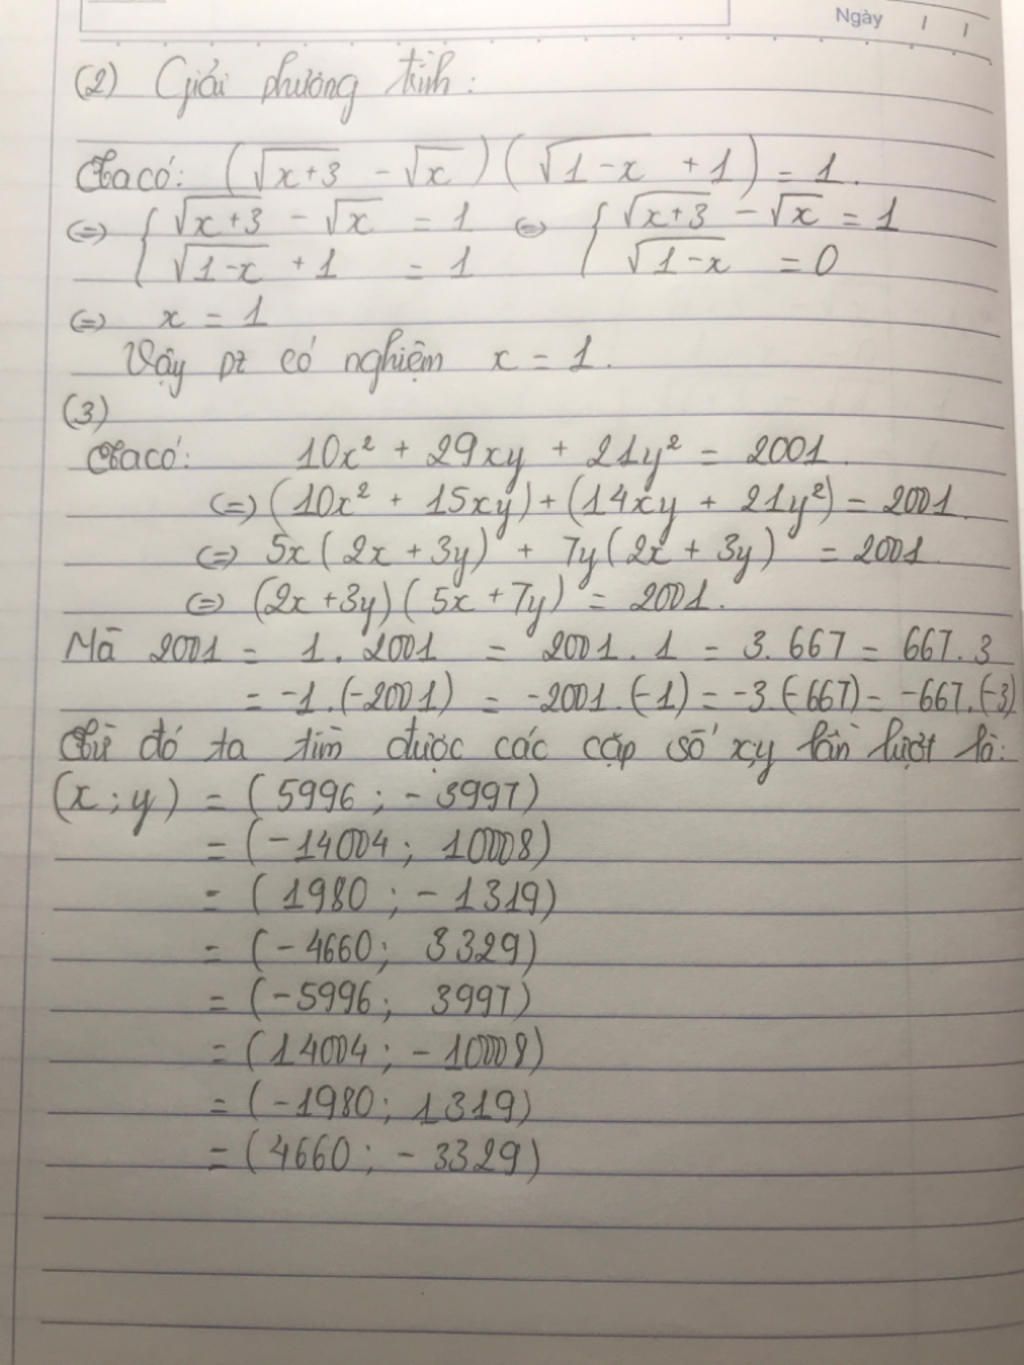 Ngày / /
(2) Giải phương trình:
Ta có: (√(x+3) - √x)(√(1-x) + 1) = 1.
(=) { √(x+3) - √x = 1 (=) { √(x+3) - √x = 1
{ √(1-x) + 1 = 1 { √(1-x) = 0
(=) x = 1
Vậy pt có nghiệm x = 1.
(3)
Ta có: 10x² + 29xy + 21y² = 2001
(=) (10x² + 15xy) + (14xy + 21y²) = 2001.
(=) 5x(2x + 3y) + 7y(2x + 3y) = 2001
(=) (2x+3y)(5x+7y) = 2001.
Mà 2001 = 1. 2001 = 2001. 1 = 3. 667 = 667. 3
= -1.(-2001) = -2001.(-1) = -3.(-667) = -667.(-3)
Từ đó ta tìm được các cặp số x,y lần lượt là:
(x; y) = (5996; -3997)
= (-14004; 10008)
= (1980; -1319)
= (-4660; 3329)
= (-5996; 3997)
= (14004; -10008)
= (-1980; 1319)
= (4660; -3329)